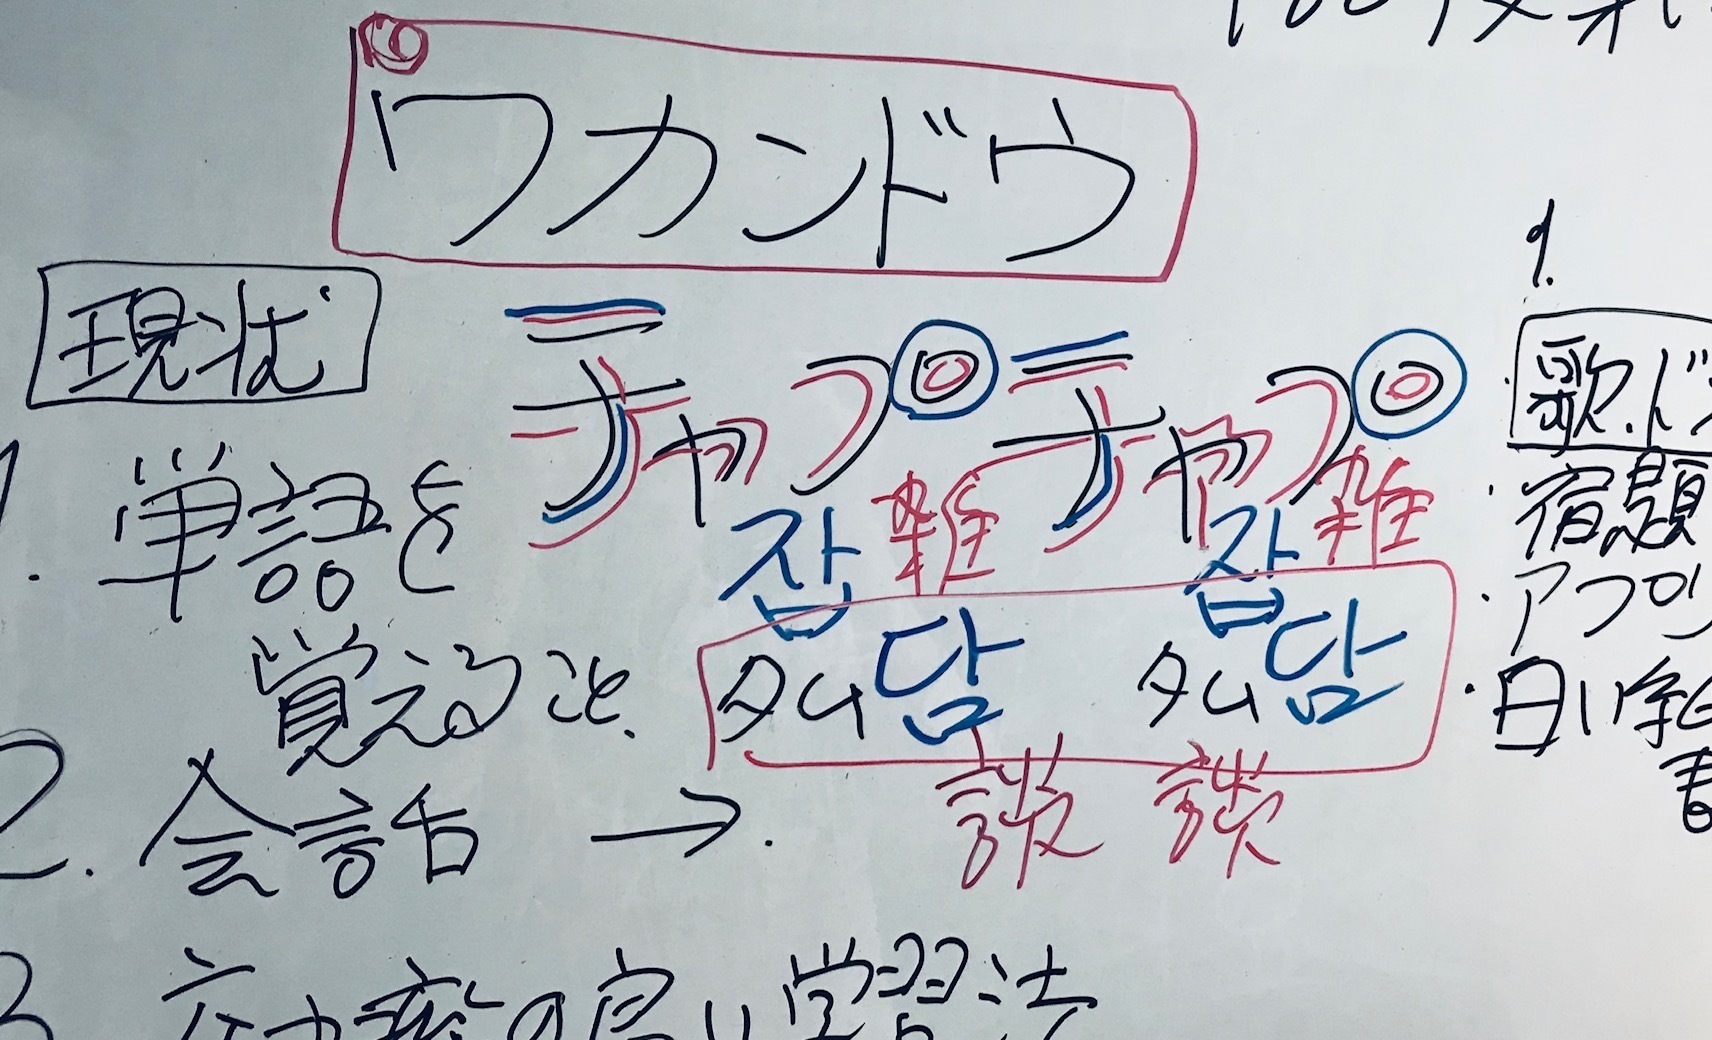 ワカンドウ
現状
チャプ チャプ
잡 雑 잡 雑
タム 담 タム 담
談 談
1. 単語を
覚えること、
2. 会話 →.
3. 効率の高い学習法
1.
歌.ド
・宿題
・アプリ
・日い